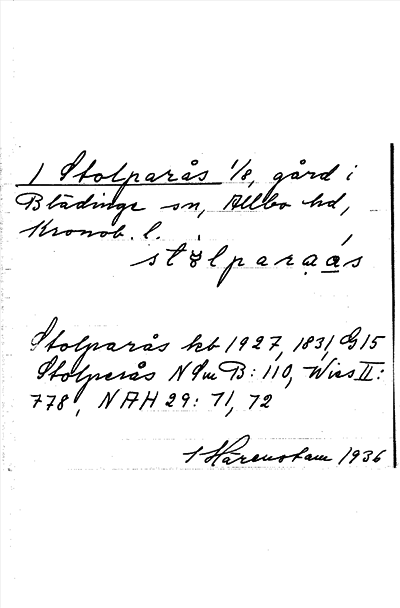 1 Stolparås 1/8, gård i
Blädinge sn, Allbo hd,
Kronob. l.
stɵlparaás
Stolparås kb 1927, 1831, G15
Stolperås NSmB: 110, Wies II:
778, NAH 29: 71, 72
1 Härenstam 1936